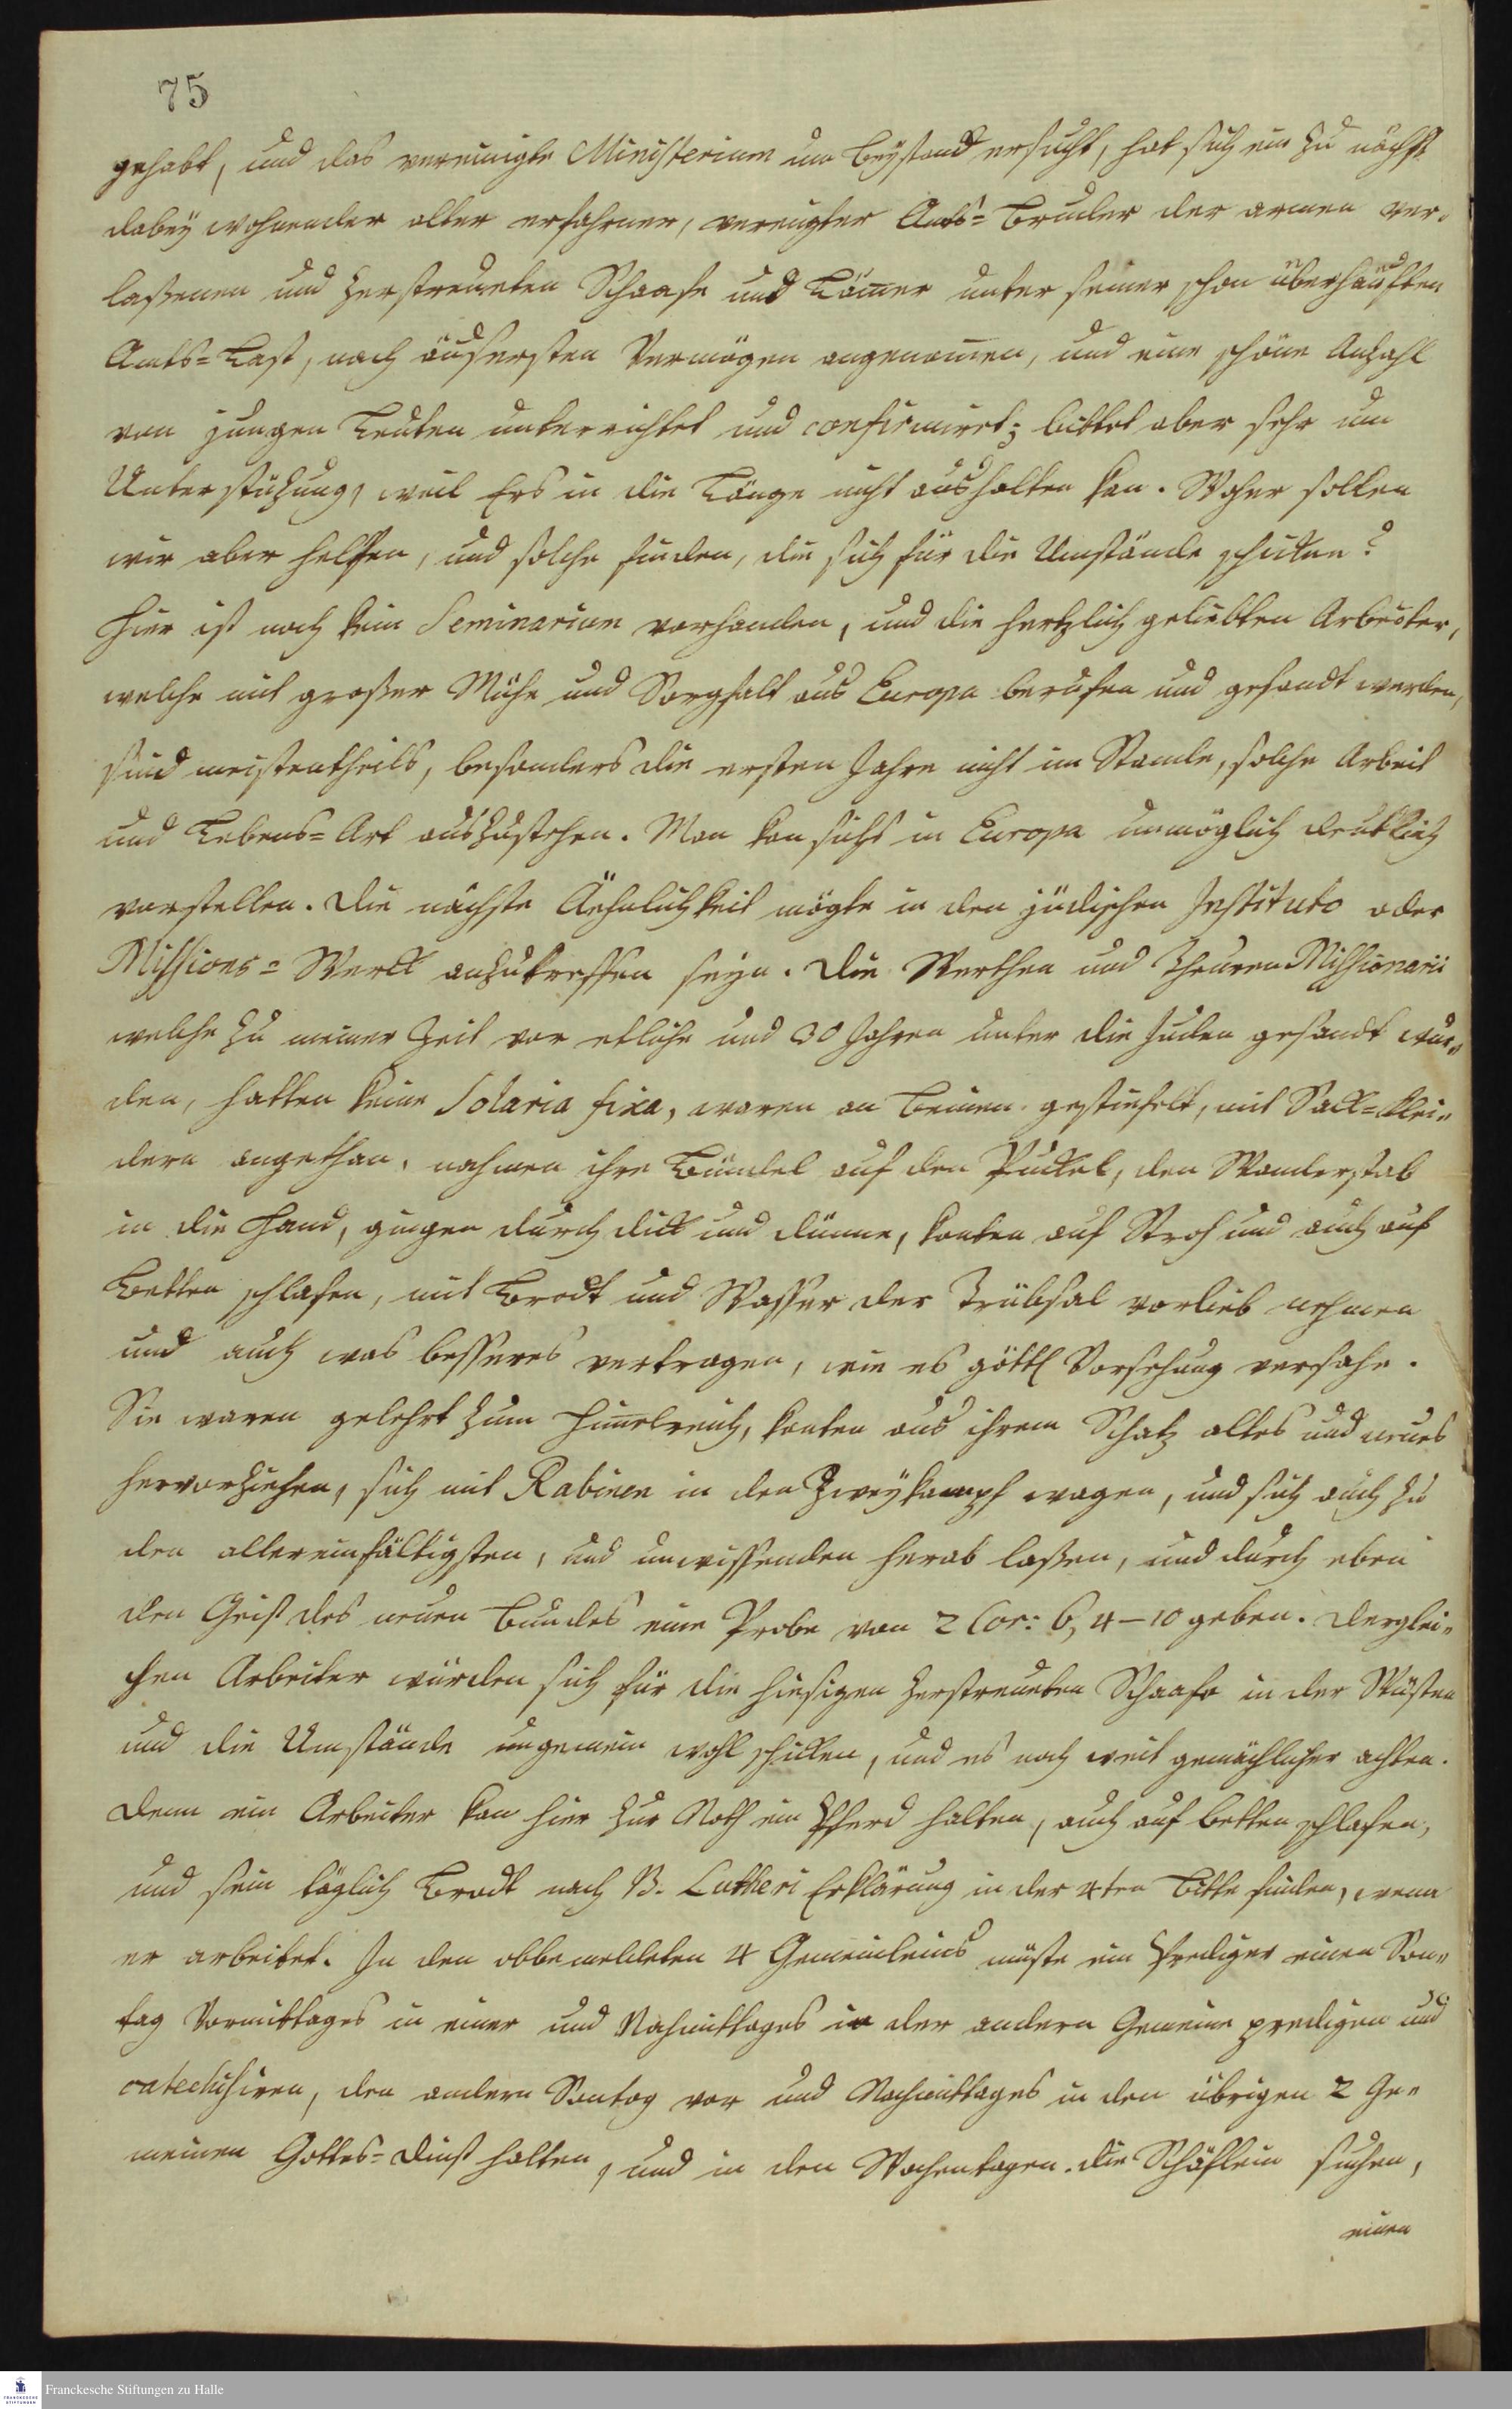 75
gehabt, und das vereinigte Ministerium um Beystand ersucht, hat sich ein zu nächst
dabey wohnender alter erfahrner, vereinigter Amts-Bruder der armen ver-
laßenen und zerstreueten Schaafe und Lämer unter seiner schon überhäuften
Amts-Last, nach äusersten Vermögen angenomen, und eine schöne Anzahl
von jungen Leuten unterrichtet und confirmiret; bittet aber sehr um
Unterstützung, weil Ers in die Länge nicht aushalten kan. Woher sollen
wir aber helffen, und solche finden, die sich für die Umstände schicken?
Hier ist noch kein Seminarium vorhanden, und die hertzlich geliebten Arbeiter,
welche mit großer Mühe und Sorgfalt aus Europa berufen und gesandt werden,
sind meistentheils, besonders die ersten Jahre nicht im Stande, solche Arbeit
und Lebens-Art auszustehen. Man kan sichs in Europa unmöglich deutlich
vorstellen. Die nächste Äehnlichkeit mögte in den jüdischen Instituto oder
Missions-Werck anzutreffen seyn. Die Werthen und Theuren Missionarii
welche zu meiner Zeit vor etliche und 30 Jahren unter die Juden gesandt wur-
den, hatten keine Solaria fixa, waren an Beinen gestiefelt, mit Sack-Klei-
dern angethan, nahmen ihre Bündel auf den Puckel, den Wanderstab
in die Hand, gingen durch dick und dünne, konten auf Stroh und auch auf
Betten schlafen, mit Brodt und Wasser der Trübsal vorlieb nehmen
und auch was besseres vertragen, wie es göttl Vorsehung versahe.
Sie waren gelehrt zum Himelreich, konten aus ihrem Schatz altes und neues
hervorziehen, sich mit Rabinen in den Zweykampf wagen, und sich auch zu
den allereinfältigsten, und unwissenden herab laßen, und durch eben
den Geist des neuen Bundes eine Probe von 2 Cor: 6, 4–10 geben. Derglei-
chen Arbeiter würden sich für die hiesigen zerstreueten Schaafe in der Wüsten
und die Umstände ungemein wohl schicken, und es noch weit gemächlicher achten.
Denn ein Arbeiter kan hier zur Noth ein Pferd halten, auch auf betten schlafen,
und sein täglich Brodt nach B. Lutheri Erklärung in der 4ten Bitte finden, wenn
er arbeitet. In den obbemeldeten 4 Gemeinleins müste ein Prediger einen Son-
tag Vormittages in einer und Nachmittages in der andern Gemeine predigen und
catechisiren, den andern Sontag vor und Nachmittages in den übrigen 2 Ge-
meinen Gottes-Dinst halten, und in den Wochentagen die Schäflein suchen,
einen
Franckesche Stiftungen zu Halle